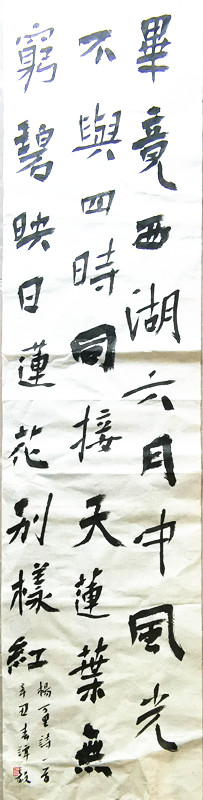 畢竟西湖六月中風光
不與四時同接天蓮葉無
窮碧映日蓮花别樣紅
楊萬里詩一首
辛丑春譚